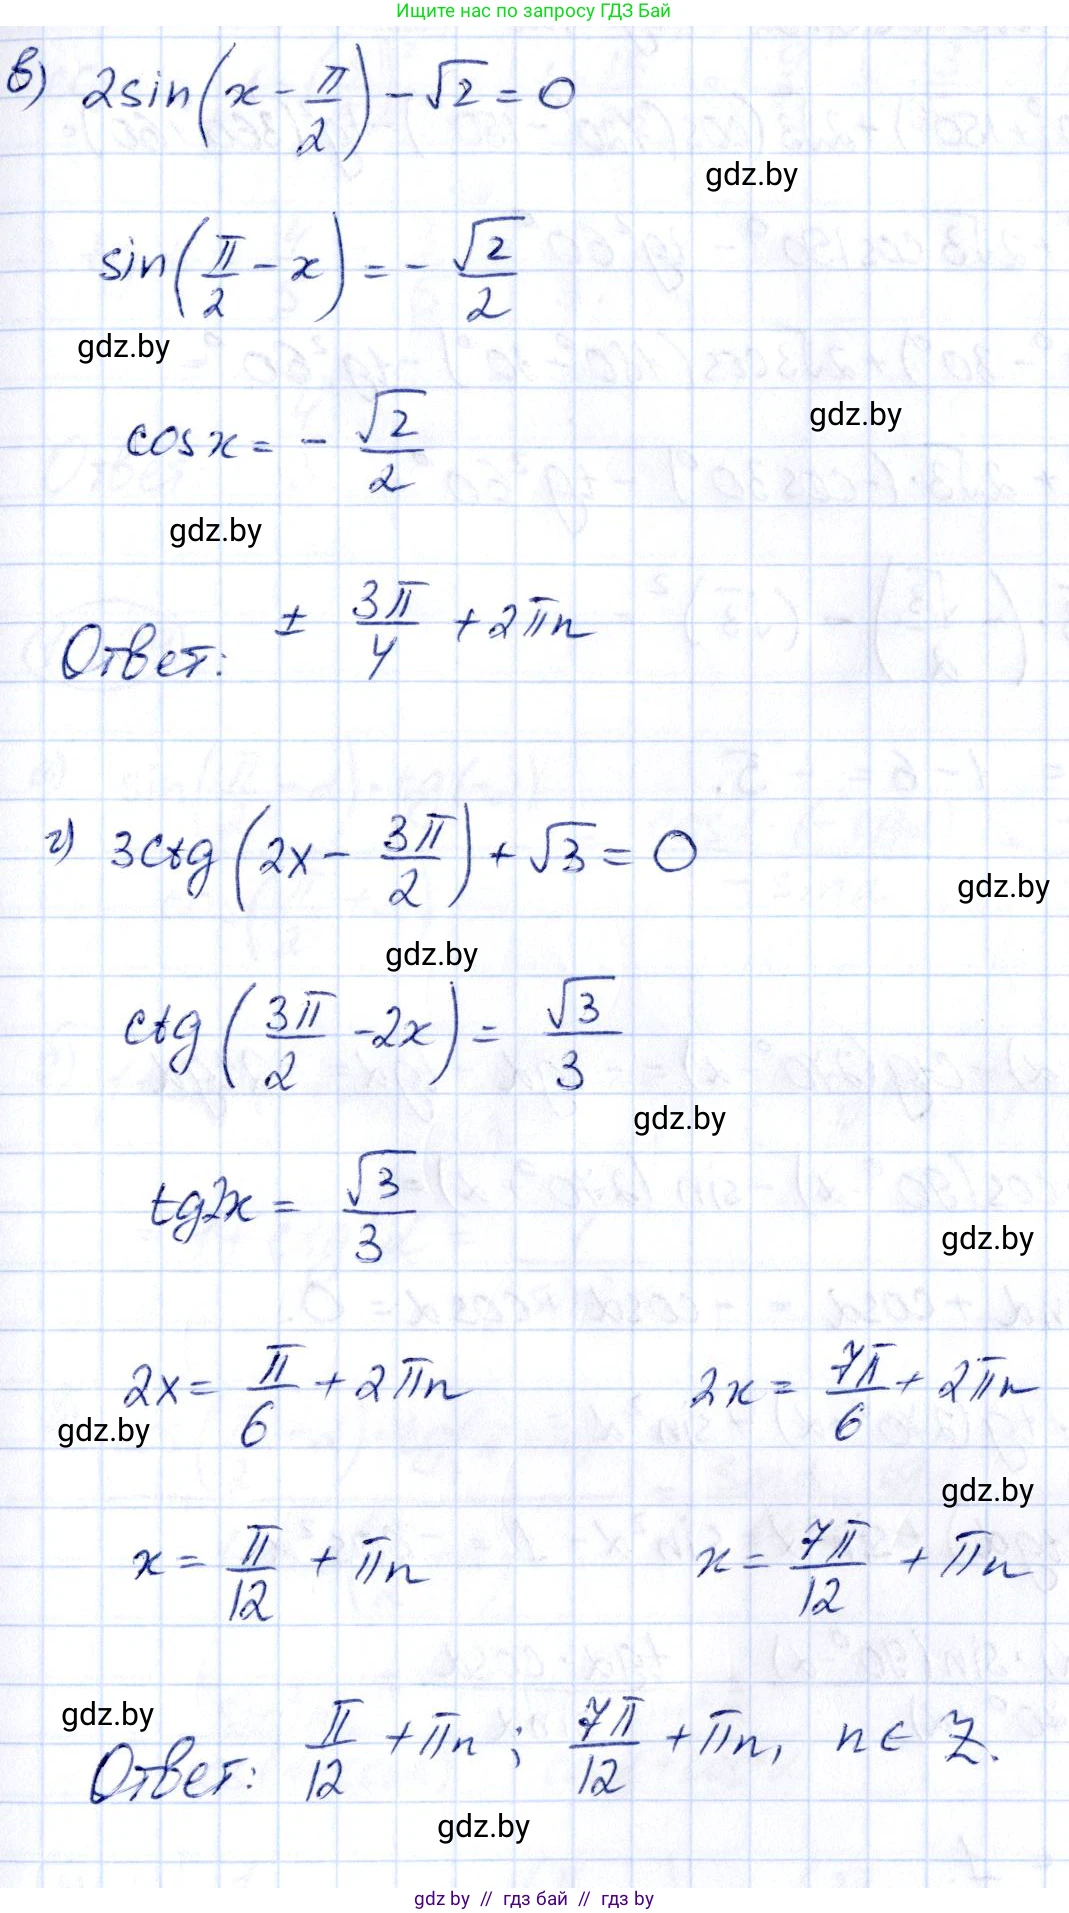 Ищите нас по запросу ГДЗ Бай
в) 2sin(x - π/2) - √2 = 0
gdz.by
sin(π/2 - x) = - √2/2
gdz.by
cos x = - √2/2
gdz.by
gdz.by
Ответ: ± 3π/4 + 2πn
г) 3ctg(2x - 3π/2) + √3 = 0
gdz.by
gdz.by
ctg(3π/2 - 2x) = √3/3
gdz.by
tg2x = √3/3
gdz.by
2x = π/6 + 2πn 2x = 7π/6 + 2πn
gdz.by
gdz.by
x = π/12 + πn x = 7π/12 + πn
gdz.by
Ответ: π/12 + πn ; 7π/12 + πn, n ∈ Z.
gdz.by
gdz by // гдз бай // гдз by